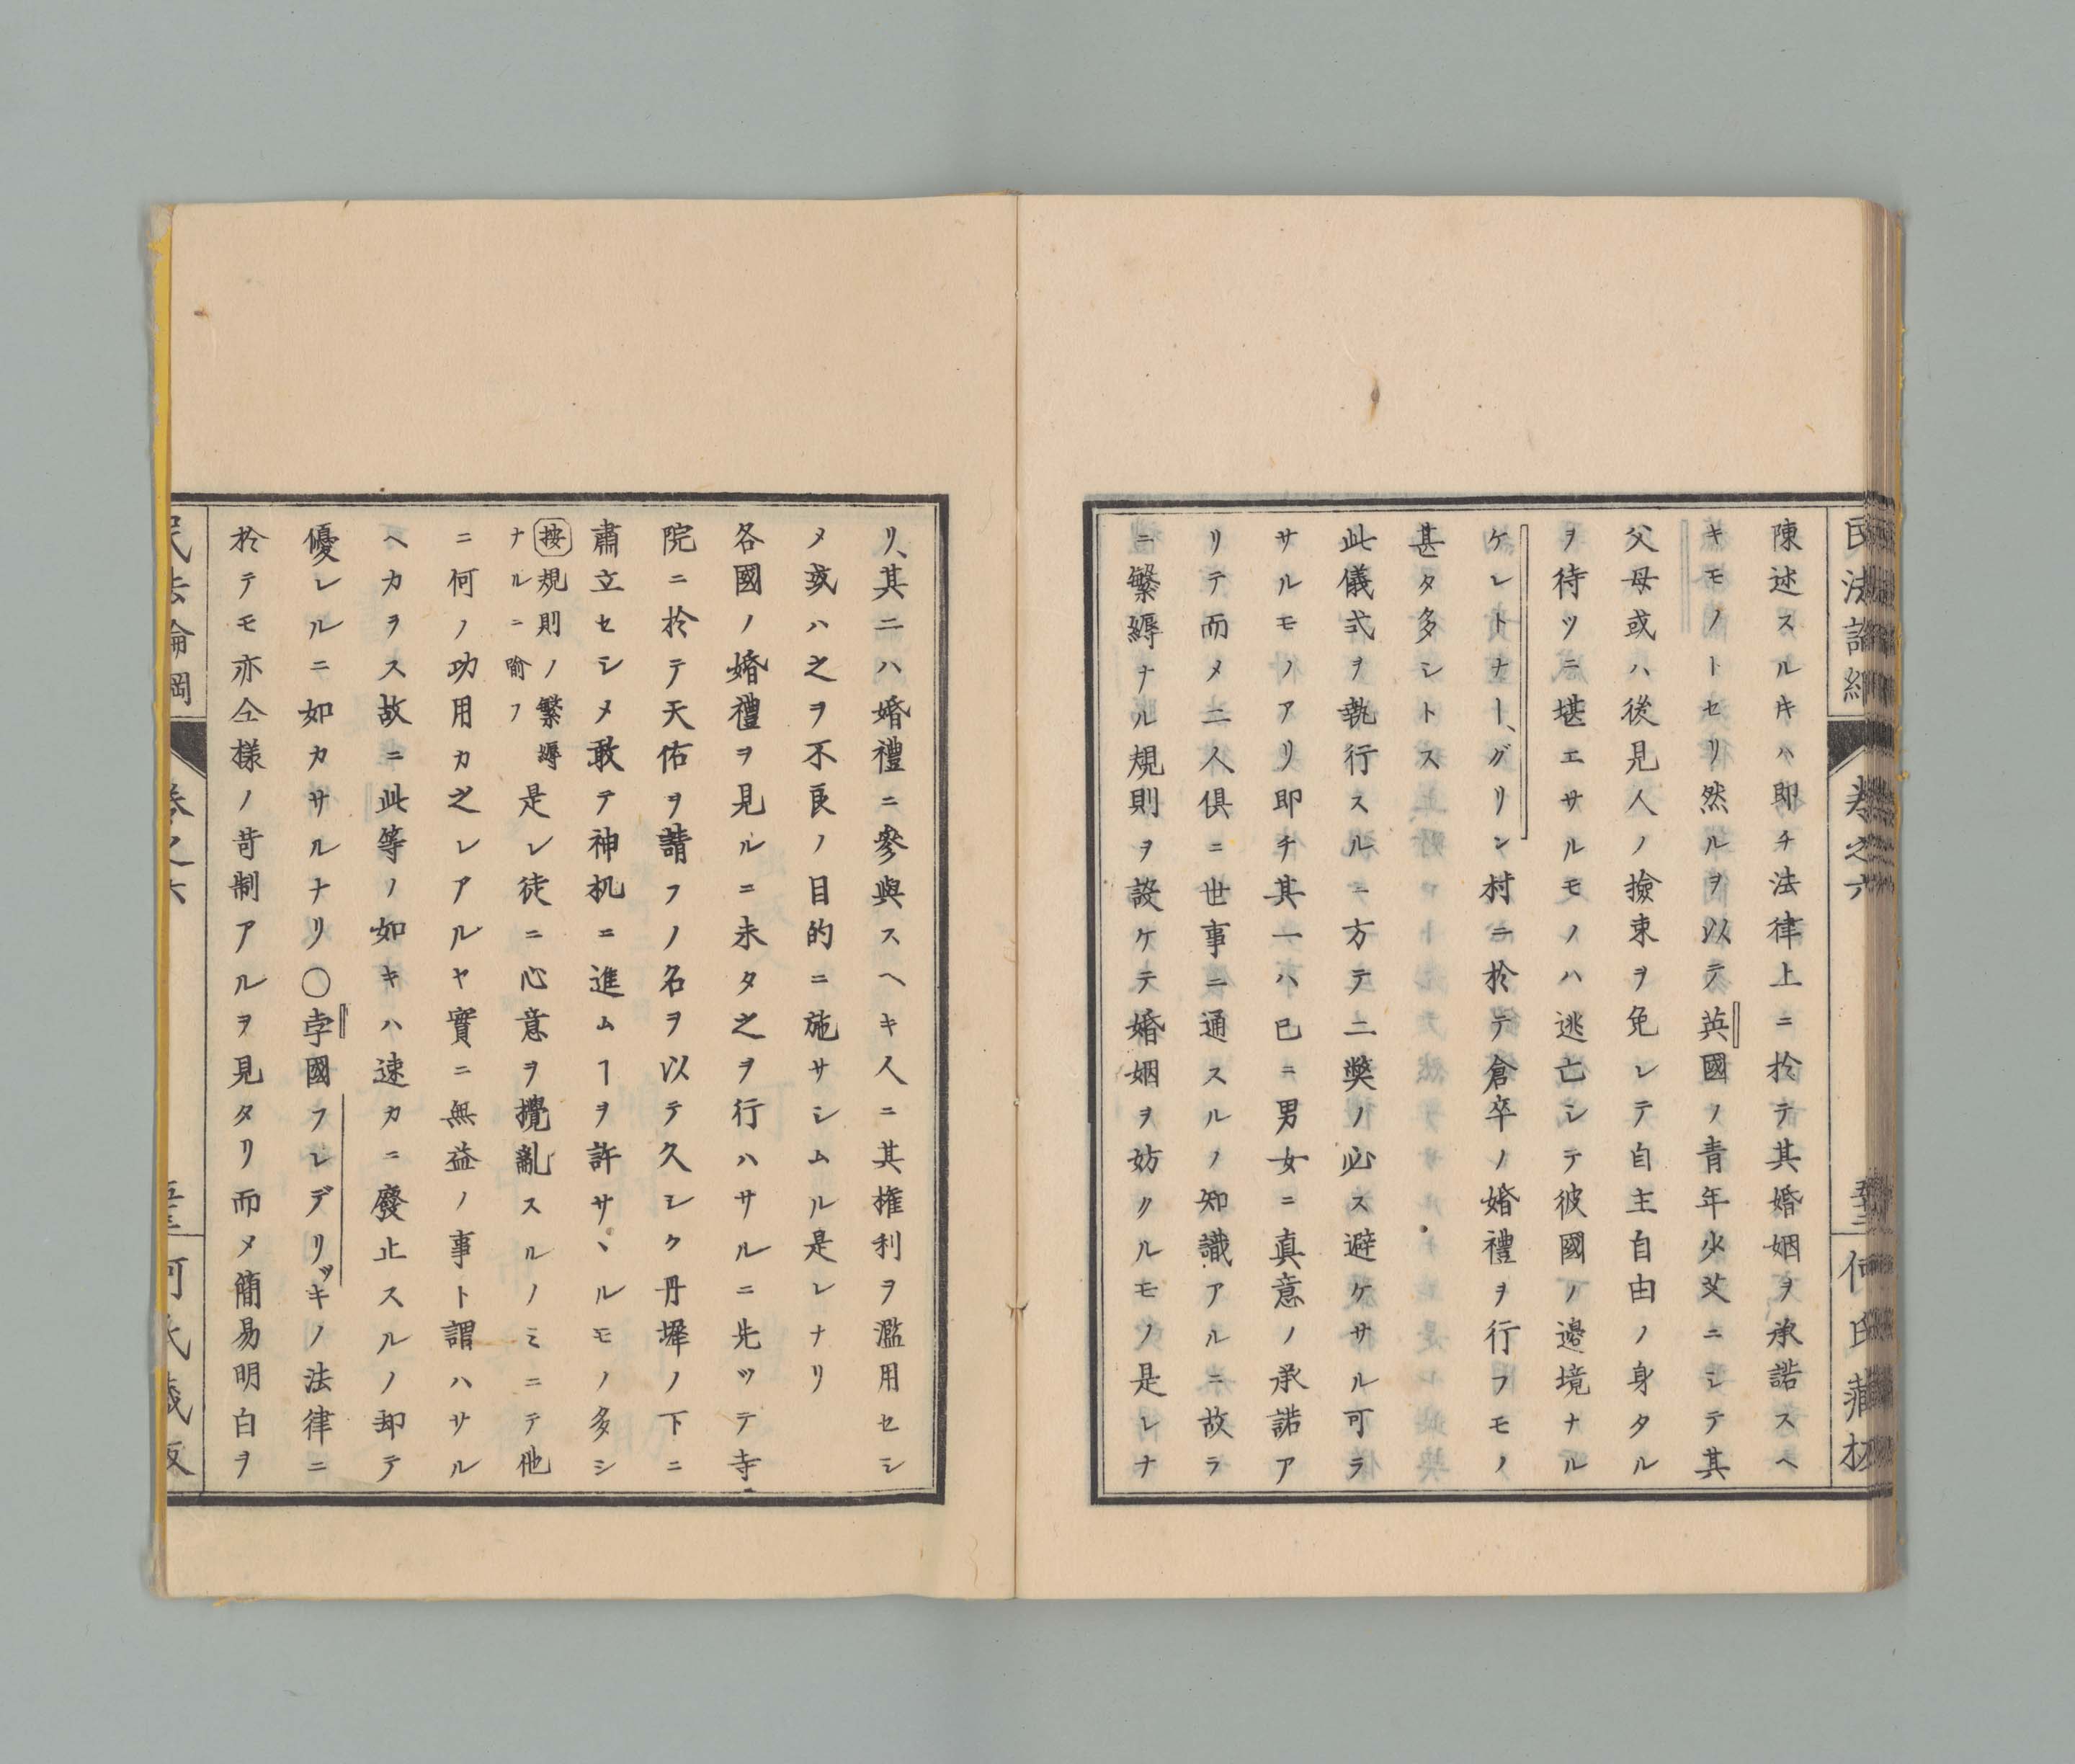 陳述スルキハ即チ法律上ニ於テ其婚姻ヲ承諾スヘ
キモノトセリ然ルヲ以テ英國ノ青年少艾ニシテ其
父母或ハ後見人ノ撿束ヲ免レテ自主自由ノ身タル
ヲ待ツニ堪エサルモノハ逃亡シテ彼國ノ邊境ナル
ケレトナー、グリン村ニ於テ倉卒ノ婚禮ヲ行フモノ
甚タ多シトス
此儀式ヲ執行スルニ方テ二獘ノ必ス避ケサル可ラ
サルモノアリ即チ其一ハ已ニ男女ニ真意ノ承諾ア
リテ而メ二人倶ニ世事ニ通スルノ知識アルニ故ラ
ニ繁縟ナル規則ヲ設ケテ婚姻ヲ妨クルモノ是レナ
リ、其二ハ婚禮ニ參與スヘキ人ニ其権利ヲ濫用セシ
メ或ハ之ヲ不良ノ目的ニ施サシムル是レナリ
各國ノ婚禮ヲ見ルニ未タ之ヲ行ハサルニ先ツテ寺
院ニ於テ天佑ヲ請フノ名ヲ以テ久シク丹墀ノ下ニ
肅立セシメ敢テ神机ニ進ムヿヲ許サヽルモノ多シ
按規則ノ繁縟
ナルニ喻フ
是レ徒ニ心意ヲ攪亂スルノミニテ他
ニ何ノ功用カ之レアルヤ實ニ無益ノ事ト謂ハサル
ヘカラス故ニ此等ノ如キハ速カニ廢止スルノ却テ
優レルニ如カサルナリ〇孛國フレデリッキノ法律ニ
於テモ亦仝様ノ苛制アルヲ見タリ而メ簡易明白ヲ
民法論綱
卷之六
何氏藏版